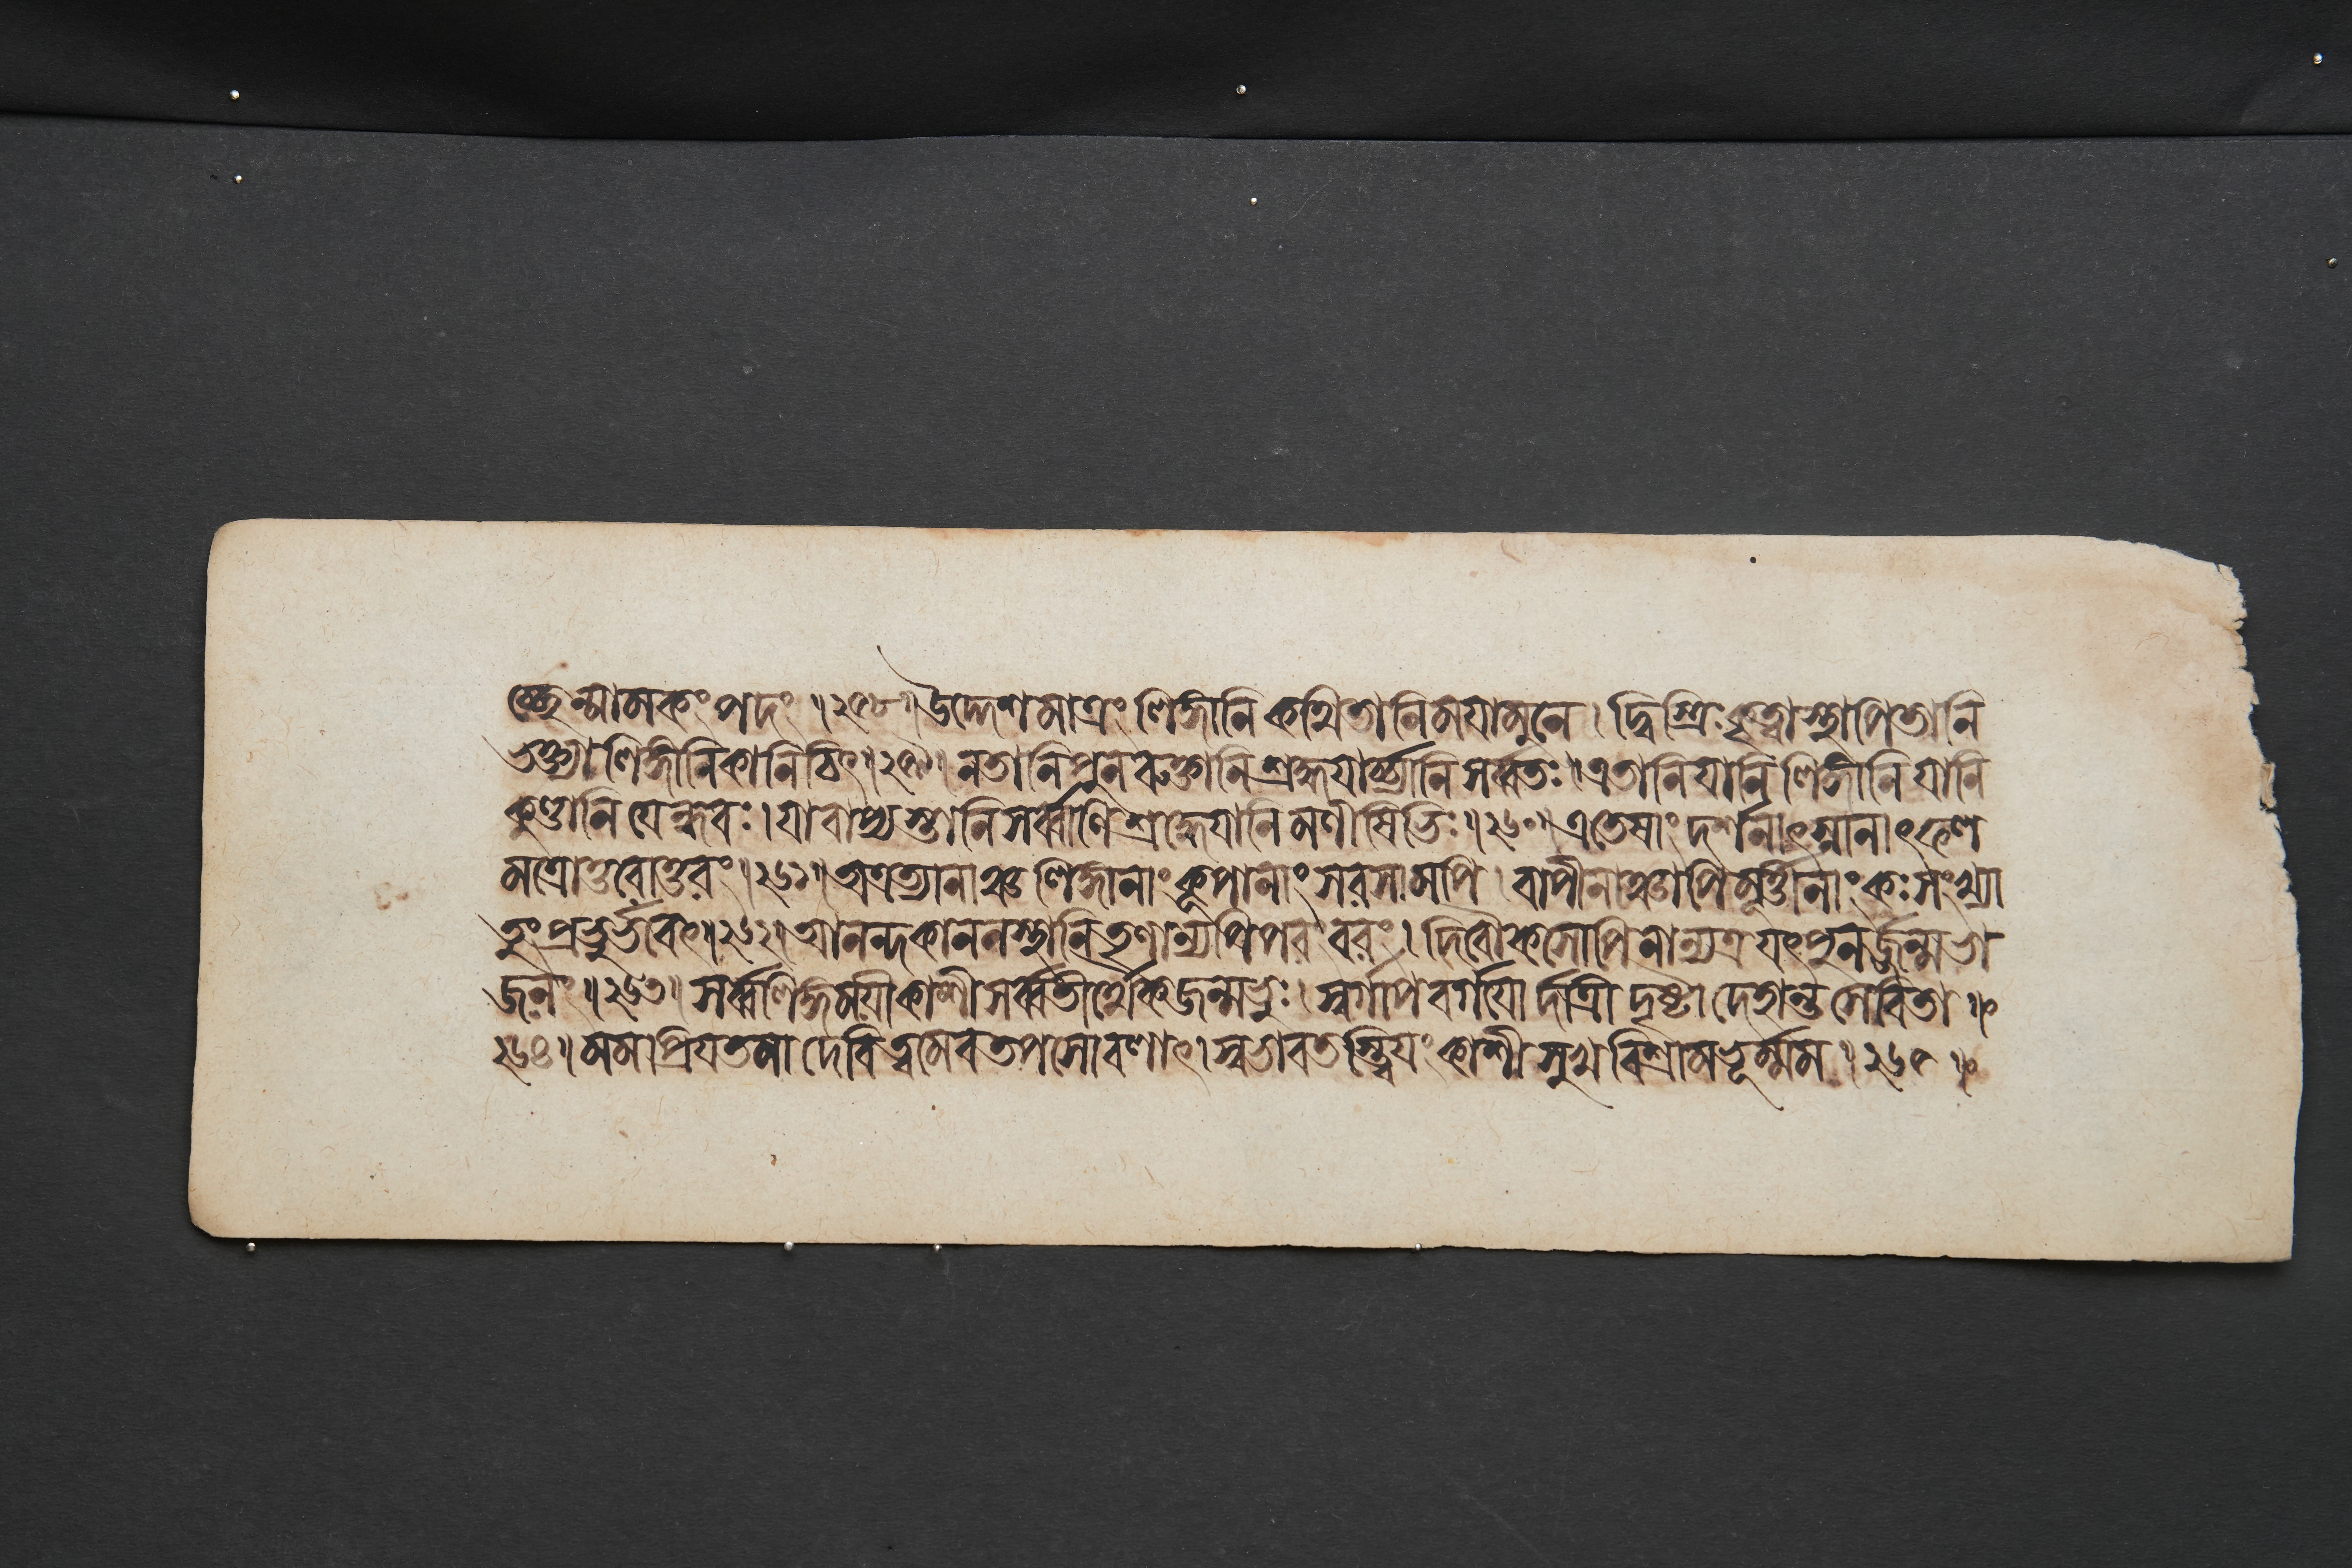 চ্ছেন্মামকং পদং ॥ ২৫৮ ॥ উদ্দেশমাত্রং লিঙ্গানি কথিতানি ময়ামুনে । দ্বিস্ত্রিঃ কৃত্বাস্থাপিতানি
ভক্ত্যালিঙ্গানিকানিচিৎ ॥ ২৫৯ ॥ নতানিপুনরুক্তানি শ্রদ্ধয়ার্চ্চ্যানি সর্ব্বতঃ । এতানি যানি লিঙ্গানি যানি
কুণ্ডানি যেন্ধবঃ । যাবাপ্যস্তানি সর্ব্বাণি শ্রদ্ধেয়ানি মণীষিভিঃ ॥ ২৬০ ॥ এতেষাং দর্শনাৎ স্নানাৎ ফল
মত্রোত্তরোত্তরং ॥ ২৬১ ॥ অত্রত্যানাঞ্চ লিঙ্গানাং কূপানাং সরসামপি । বাপীনাঞ্চাপি মূর্ত্তীনাং কঃ সংখ্যা
তুং প্রভুর্ভবেৎ ॥ ২৬২ ॥ আনন্দকাননস্থানি তৃণান্যপি পরং বরং । দিবৌকসোপি নান্যত্র যৎ পুনর্জ্জন্মভা
জনং ॥ ২৬৩ ॥ সর্ব্বলিঙ্গময়ী কাশী সর্ব্বতীর্থৈকজন্মভুঃ । স্বর্গাপবর্গয়োর্দাত্রী দৃষ্টা দেহান্তসেবিতা ॥
২৬৪ ॥ মম প্রিয়তমা দেবি ত্বমেব তপসোবলাৎ । স্বভাবতস্ত্বিয়ং কাশী সুখবিশ্রামভূর্ম্মম ॥ ২৬৫ ॥